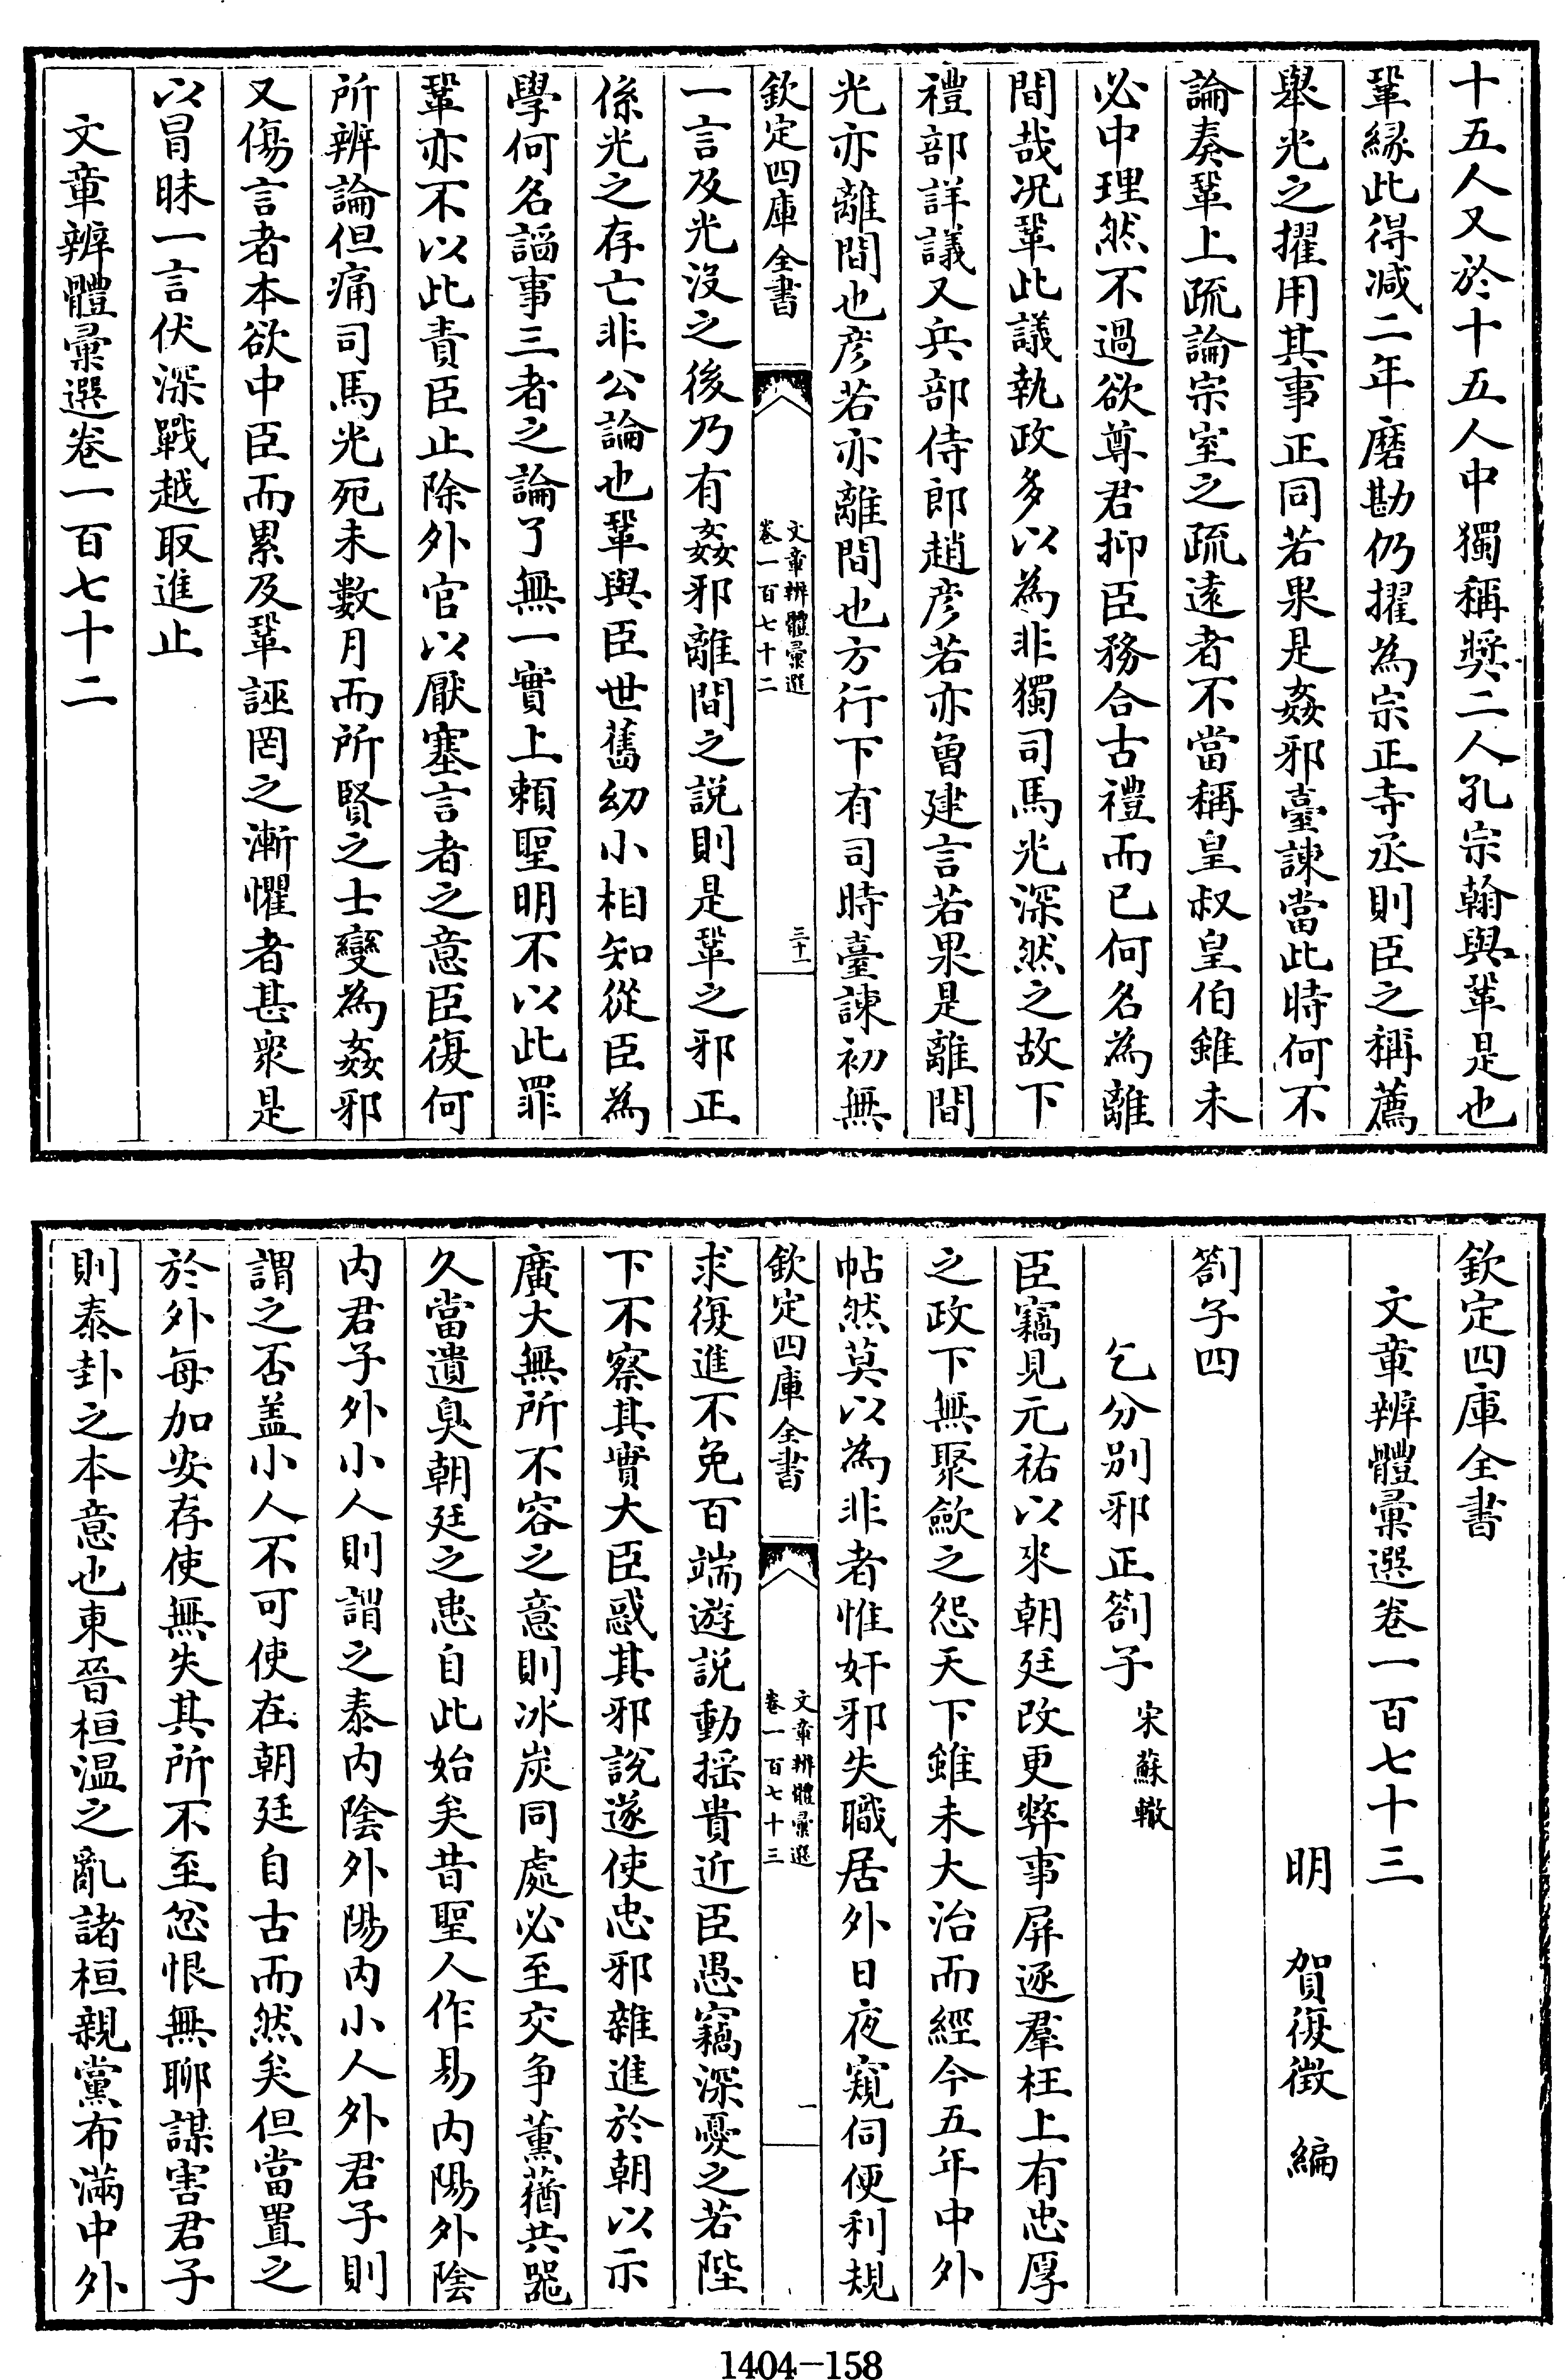 十五人又於十五人中獨稱奬二人孔宗翰與鞏是也
鞏緣此得減二年磨勘仍擢為宗正寺丞則臣之稱薦
舉光之擢用其事正同若果是姦邪臺諫當此時何不
論奏鞏上疏論宗室之疏遠者不當稱皇叔皇伯雖未
必中理然不過欲尊君抑臣務合古禮而已何名為離
間哉况鞏此議執政多以為非獨司馬光深然之故下
禮部詳議又兵部侍郎趙彦若亦曾建言若果是離間
光亦離間也彦若亦離間也方行下有司時臺諫初無
欽定四庫全書
文章辨體彙選
卷一百七十二
三十一
一言及光沒之後乃有姦邪離間之説則是鞏之邪正
係光之存亡非公論也鞏與臣世舊幼小相知從臣為
學何名謟事三者之論了無一實上賴聖明不以此罪
鞏亦不以此責臣止除外官以厭塞言者之意臣復何
所辨論但痛司馬光死未數月而所賢之士變為姦邪
又傷言者本欲中臣而累及鞏誣罔之漸懼者甚衆是
以冒昧一言伏深戰越取進止
文章辨體彙選卷一百七十二
欽定四庫全書
文章辨體彙選卷一百七十三
明 賀復徵 編
劄子四
乞分别邪正劄子 宋蘇轍
臣竊見元祐以來朝廷改更弊事屏逐羣枉上有忠厚
之政下無聚歛之怨天下雖未大治而經今五年中外
帖然莫以為非者惟奸邪失職居外日夜窺伺便利規
欽定四庫全書
文章辨體彙選
卷一百七十三
一
求復進不免百端遊説動揺貴近臣愚竊深憂之若陛
下不察其實大臣惑其邪說遂使忠邪雜進於朝以示
廣大無所不容之意則冰炭同處必至交争薰蕕共器
久當遺臭朝廷之患自此始矣昔聖人作易内陽外陰
内君子外小人則謂之泰内陰外陽内小人外君子則
謂之否盖小人不可使在朝廷自古而然矣但當置之
於外每加安存使無失其所不至忿恨無聊謀害君子
則泰卦之本意也東晉桓温之亂諸桓親黨布滿中外
1404-158